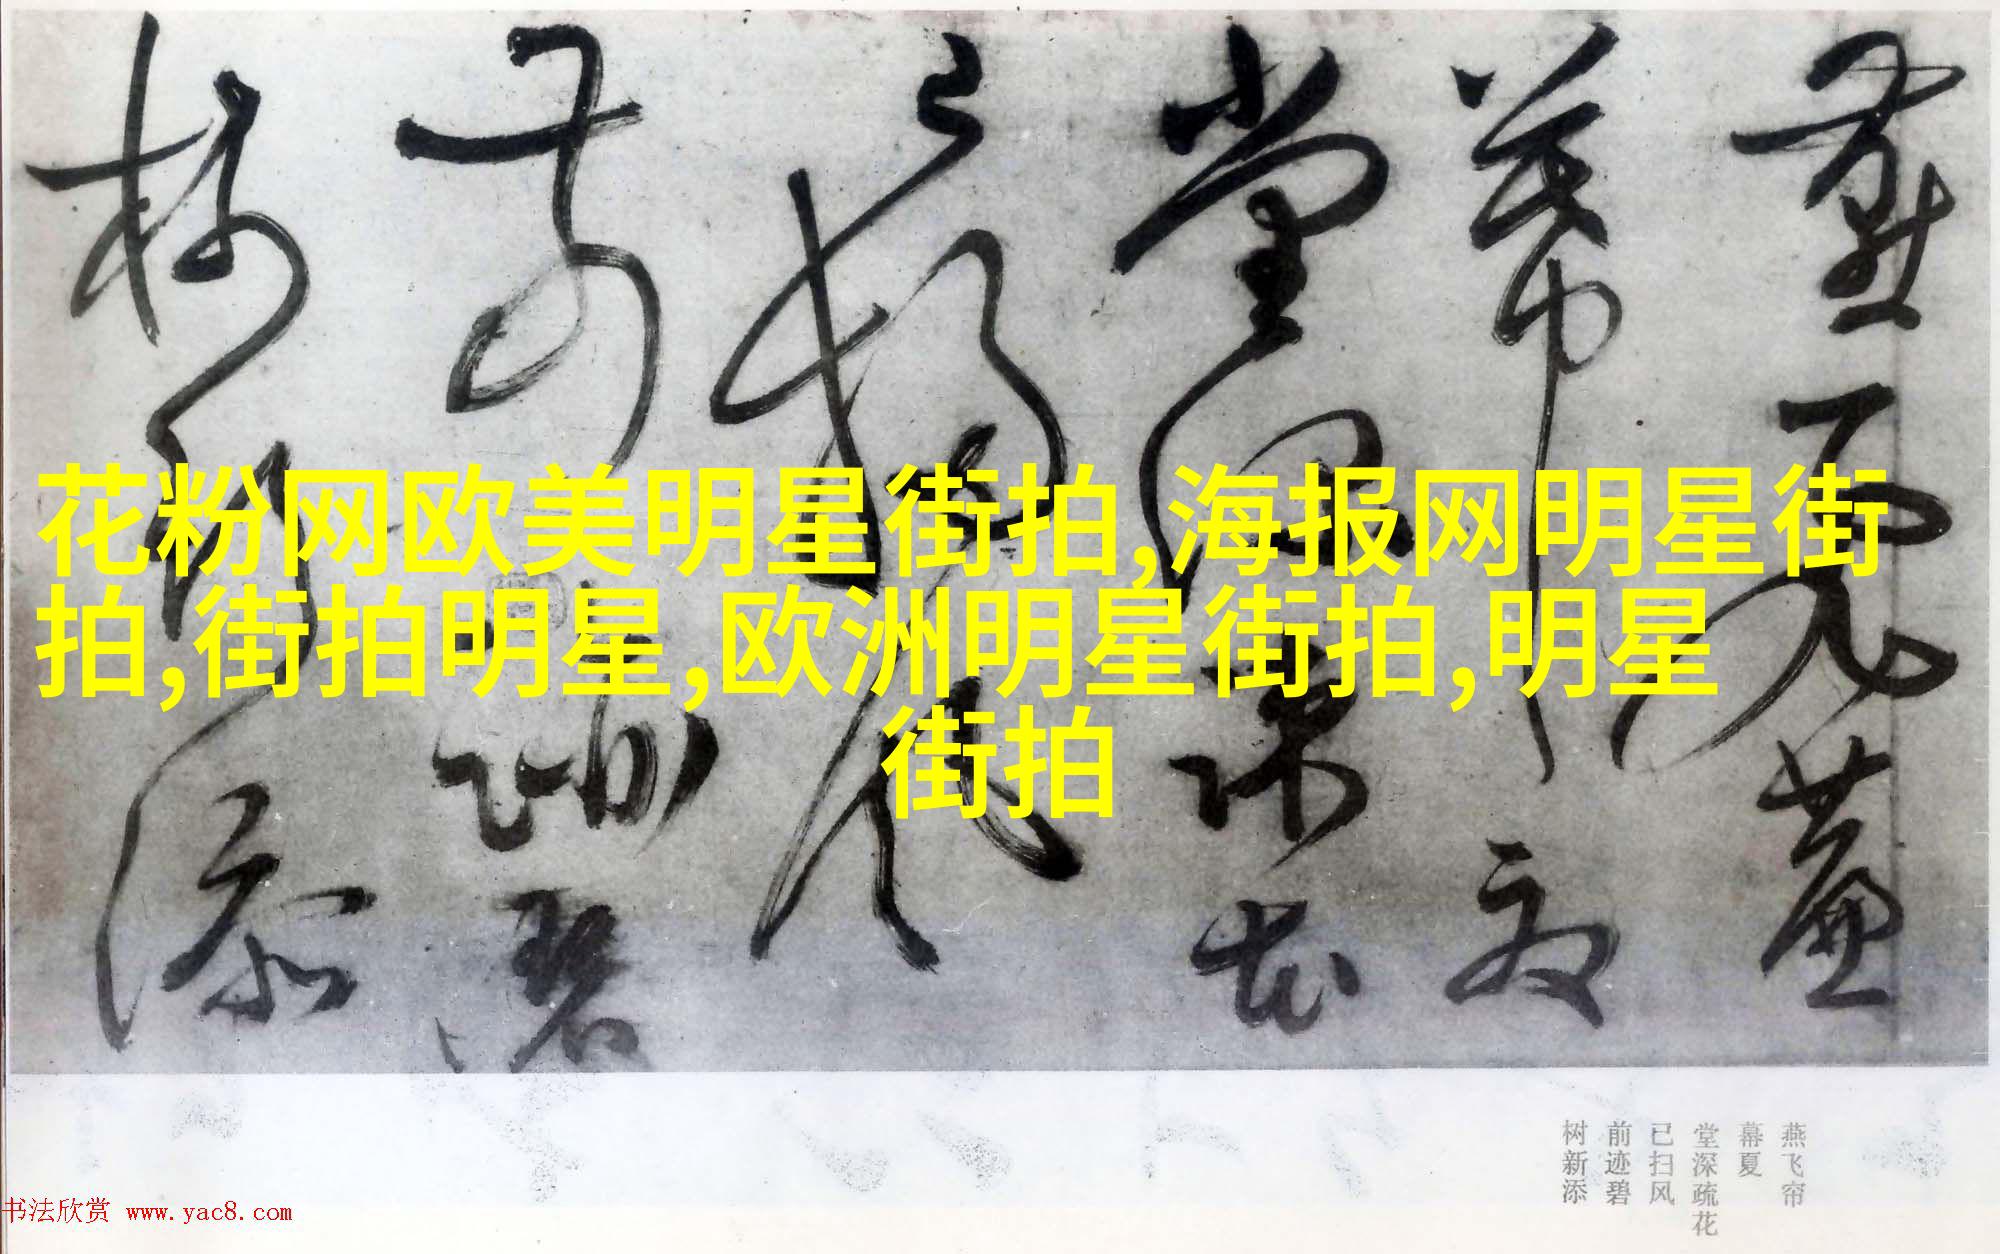 燕飞帘
幕夏
堂深疏花
已扫风
前迹碧
树新添
花粉网欧美明星街拍,海报网明星街
拍,街拍明星,欧洲明星街拍,明星
街拍
书法欣赏 www.yac8.com